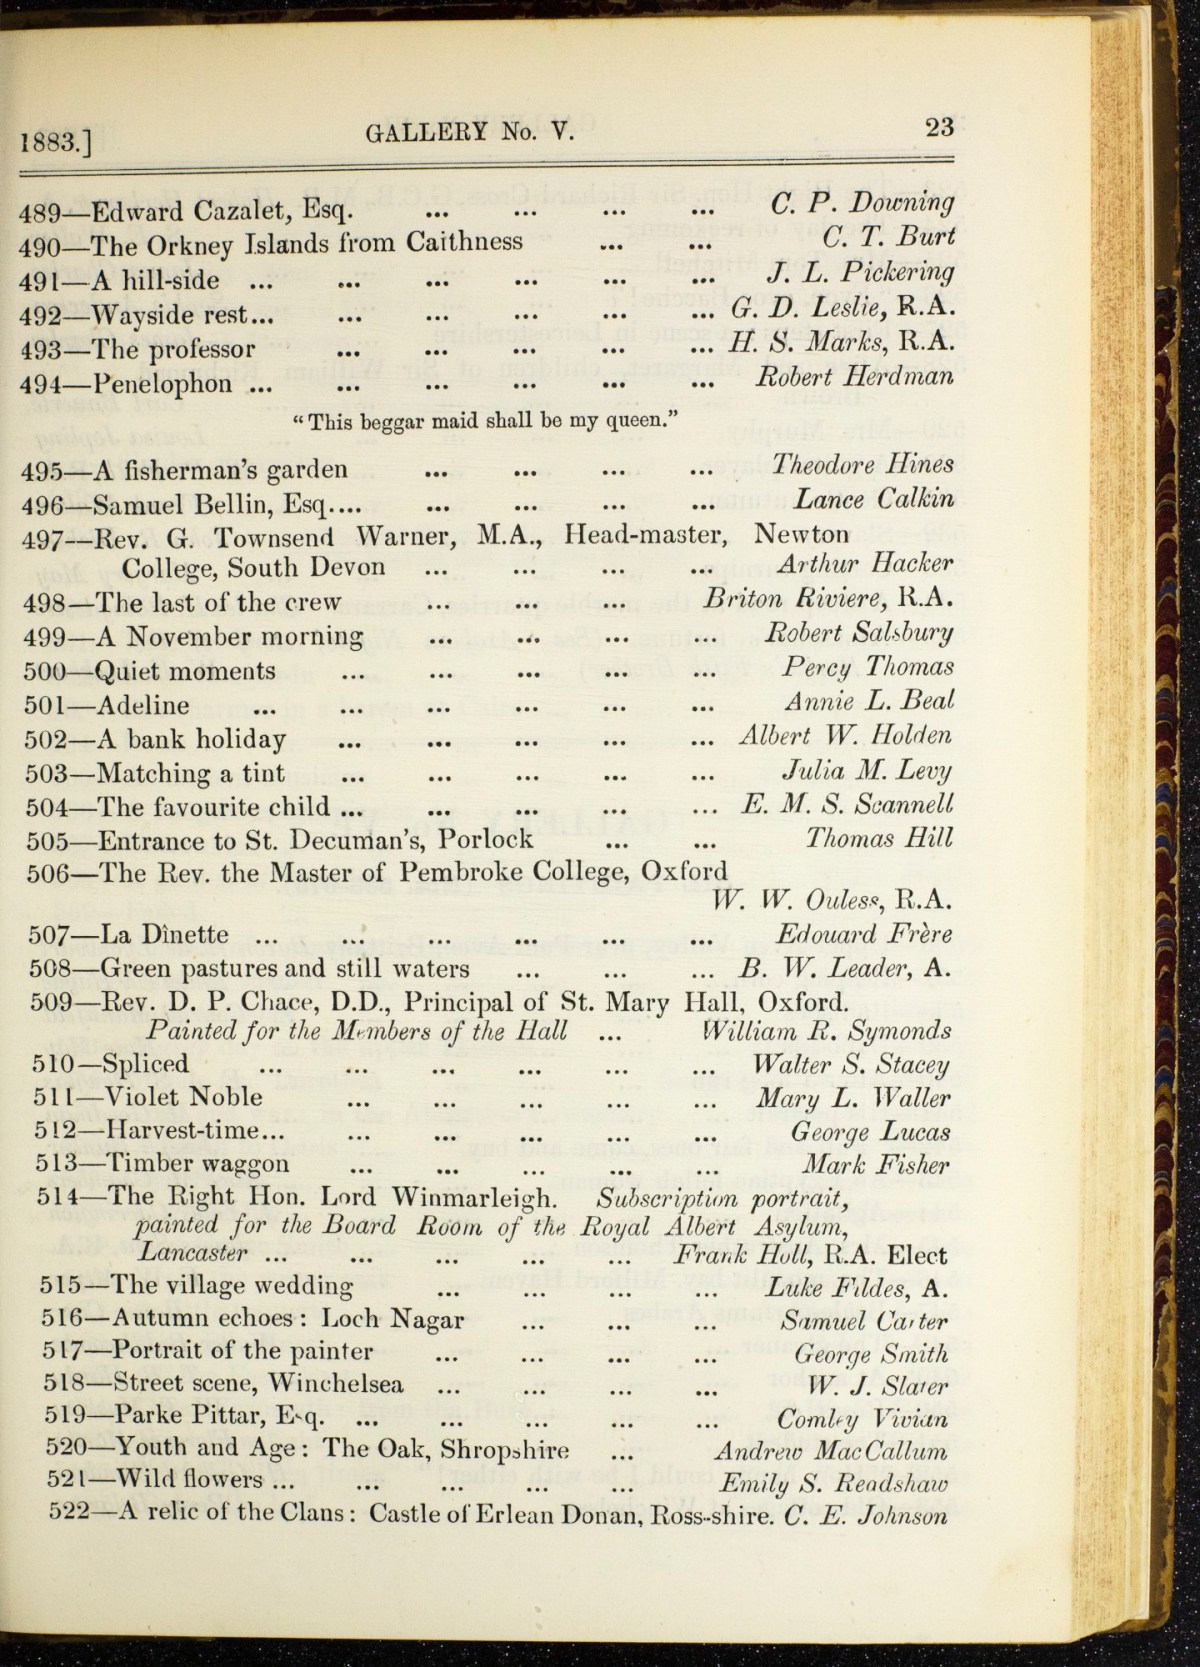 1883.] GALLERY No. V. 23
489—Edward Cazalet, Esq. ... ... ... ... C. P. Downing
490—The Orkney Islands from Caithness ... ... C. T. Burt
491—A hill-side ... ... ... ... ... ... J. L. Pickering
492—Wayside rest... ... ... ... ... ... G. D. Leslie, R.A.
493—The professor ... ... ... ... ... H. S. Marks, R.A.
494—Penelophon ... ... ... ... ... ... Robert Herdman
“This beggar maid shall be my queen.”
495—A fisherman's garden ... ... ... ... Theodore Hines
496—Samuel Bellin, Esq.... ... ... ... ... Lance Calkin
497—Rev. G. Townsend Warner, M.A., Head-master, Newton
College, South Devon ... ... ... ... Arthur Hacker
498—The last of the crew ... ... ... Briton Riviere, R.A.
499—A November morning ... ... ... Robert Salsbury
500—Quiet moments ... ... ... ... ... Percy Thomas
501—Adeline ... ... ... ... ... ... Annie L. Beal
502—A bank holiday ... ... ... ... ... Albert W. Holden
503—Matching a tint ... ... ... ... ... Julia M. Levy
504—The favourite child ... ... ... ... ... E. M. S. Scannell
505—Entrance to St. Decuman's, Porlock ... ... Thomas Hill
506—The Rev. the Master of Pembroke College, Oxford
W. W. Ouless, R.A.
507—La Dînette ... ... ... ... ... ... Edouard Frère
508—Green pastures and still waters ... ... ... B. W. Leader, A.
509—Rev. D. P. Chace, D.D., Principal of St. Mary Hall, Oxford.
Painted for the Members of the Hall ... William R. Symonds
510—Spliced ... ... ... ... ... ... Walter S. Stacey
511—Violet Noble ... ... ... ... ... Mary L. Waller
512—Harvest-time... ... ... ... ... ... George Lucas
513—Timber waggon ... ... ... ... ... Mark Fisher
514—The Right Hon. Lord Winmarleigh. Subscription portrait,
painted for the Board Room of the Royal Albert Asylum,
Lancaster ... ... ... ... ... Frank Holl, R.A. Elect
515—The village wedding ... ... ... ... Luke Fildes, A.
516—Autumn echoes: Loch Nagar ... ... ... Samuel Carter
517—Portrait of the painter ... ... ... ... George Smith
518—Street scene, Winchelsea ... ... ... ... W. J. Slater
519—Parke Pittar, Esq. ... ... ... ... ... Comley Vivian
520—Youth and Age: The Oak, Shropshire ... Andrew MacCallum
521—Wild flowers ... ... ... ... ... Emily S. Readshaw
522—A relic of the Clans: Castle of Erlean Donan, Ross-shire. C. E. Johnson